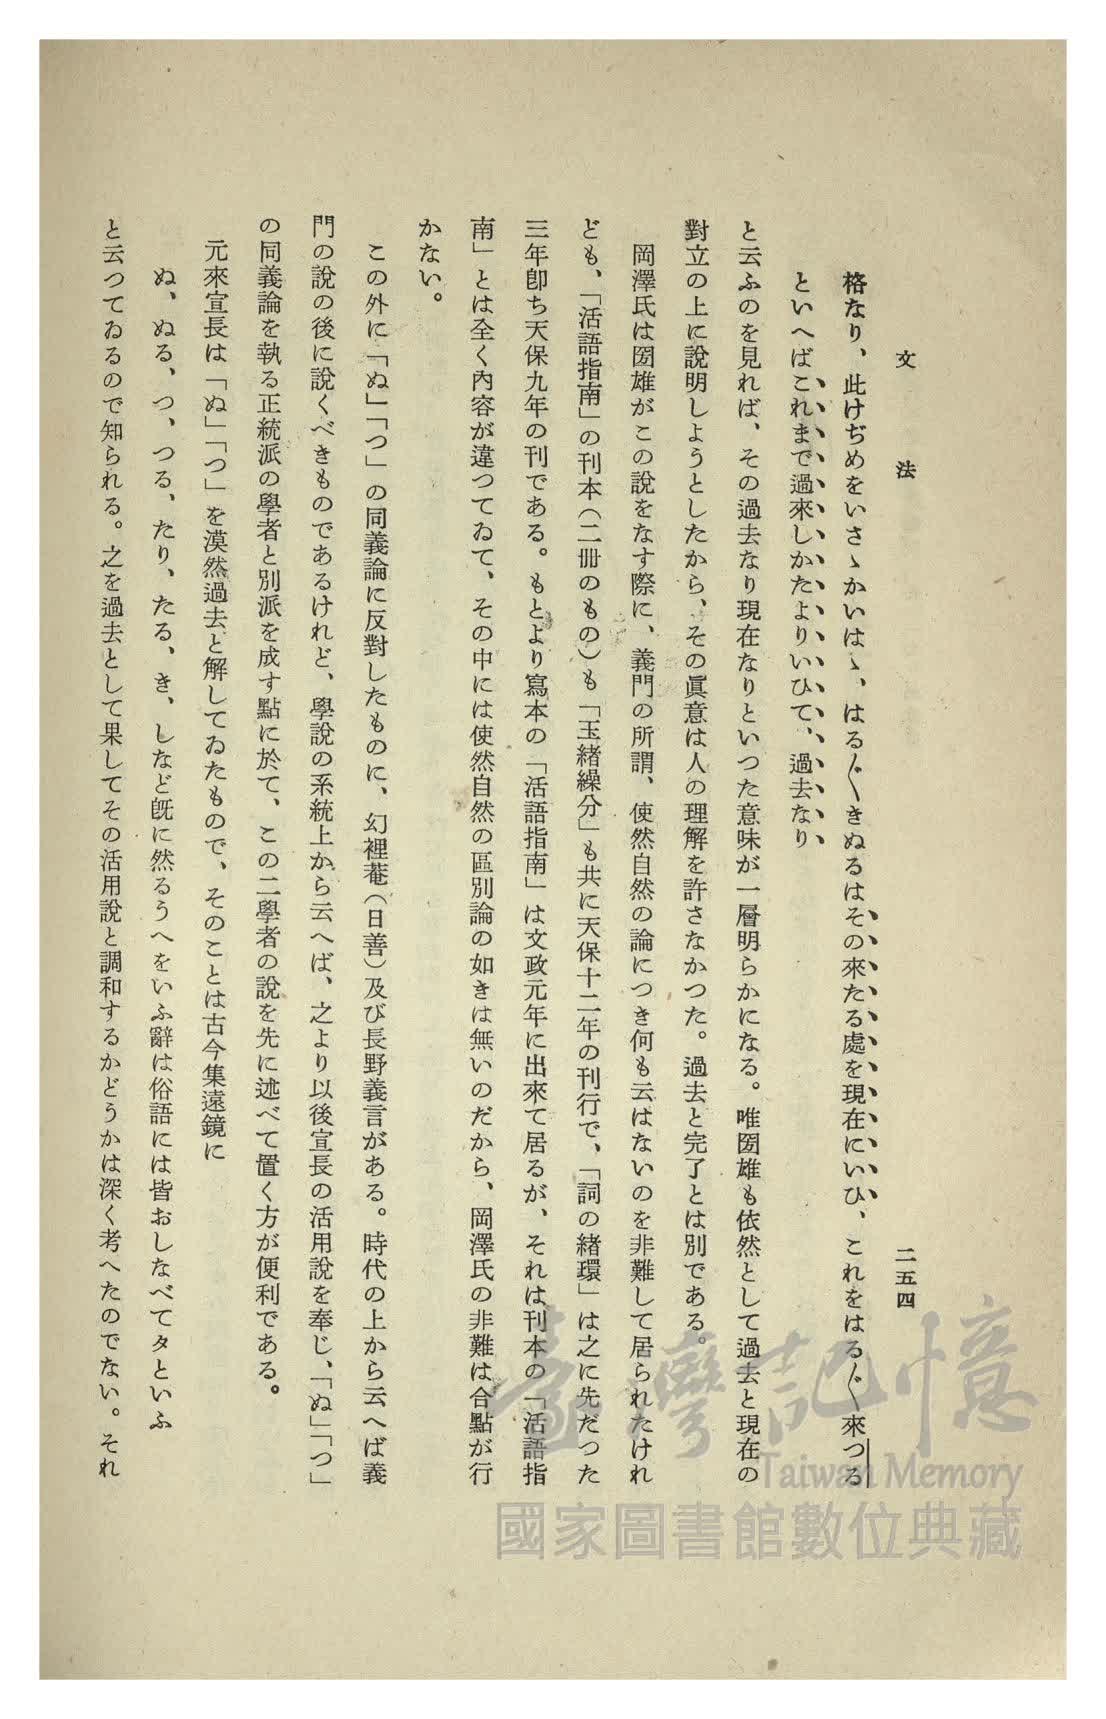 文法
二五四
格なり、此けぢめをいさゝかいはゝ、はる〴〵きぬるはその來たる處を現在にいひ、これをはる〴〵來つる
といへばこれまで過來しかたよりいひて、過去なり
と云ふのを見れば、その過去なり現在なりといつた意味が一層明らかになる。唯圀雄も依然として過去と現在の
對立の上に說明しようとしたから、その眞意は人の理解を許さなかつた。過去と完了とは別である。
岡澤氏は圀雄がこの說をなす際に、義門の所謂、使然自然の論につき何も云はないのを非難して居られたけれ
ども、「活語指南」の刊本（二冊のもの）も「玉緒繰分」も共に天保十二年の刊行で、「詞の緒環」は之に先だつた
三年卽ち天保九年の刊である。もとより寫本の「活語指南」は文政元年に出來て居るが、それは刊本の「活語指
南」とは全く內容が違つてゐて、その中には使然自然の區別論の如きは無いのだから、岡澤氏の非難は合點が行
かない。
この外に「ぬ」「つ」の同義論に反對したものに、幻裡菴（日善）及び長野義言がある。時代の上から云へば義
門の說の後に說くべきものであるけれど、學說の系統上から云へば、之より以後宣長の活用說を奉じ、「ぬ」「つ」
の同義論を執る正統派の學者と別派を成す點に於て、この二學者の說を先に述べて置く方が便利である。
元來宣長は「ぬ」「つ」を漠然過去と解してゐたもので、そのことは古今集遠鏡に
ぬ、ぬる、つ、つる、たり、たる、き、しなど旣に然るうへをいふ辭は俗語には皆おしなべてタといふ
と云つてゐるので知られる。之を過去として果してその活用說と調和するかどうかは深く考へたのでない。それ
臺灣記憶
Taiwan Memory
國家圖書館數位典藏